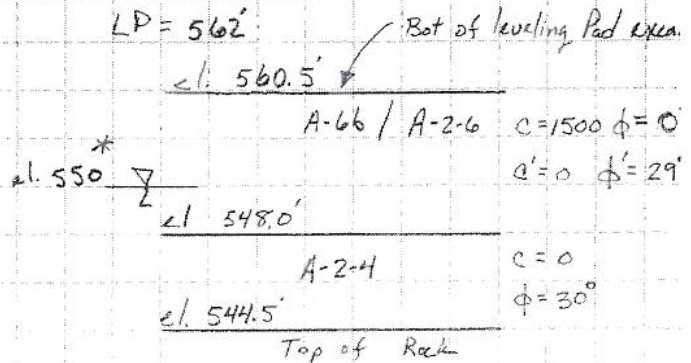 LP = 562'
Bot of leveling Pad exca.
el. 560.5'
A-6b / A-2-6 c=1500 ϕ=0
c'=0 ϕ'=29°
*
el. 550
el 548.0'
A-2-4
c=0
ϕ=30°
el. 544.5'
Top of Rock